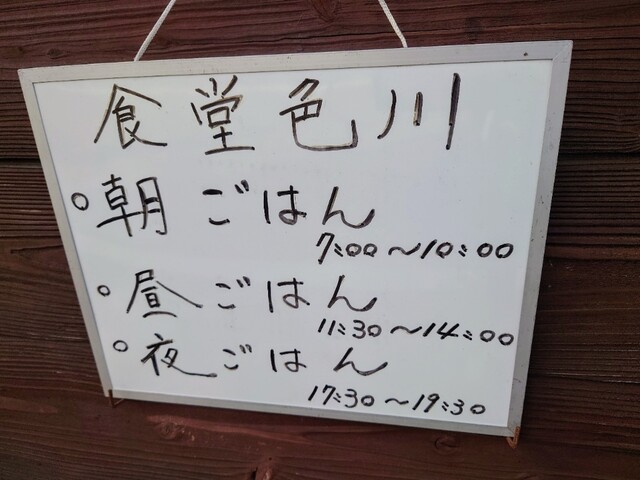 食堂色川
○朝ごはん
7:00～10:00
○昼ごはん
11:30～14:00
○夜ごはん
17:30～19:30